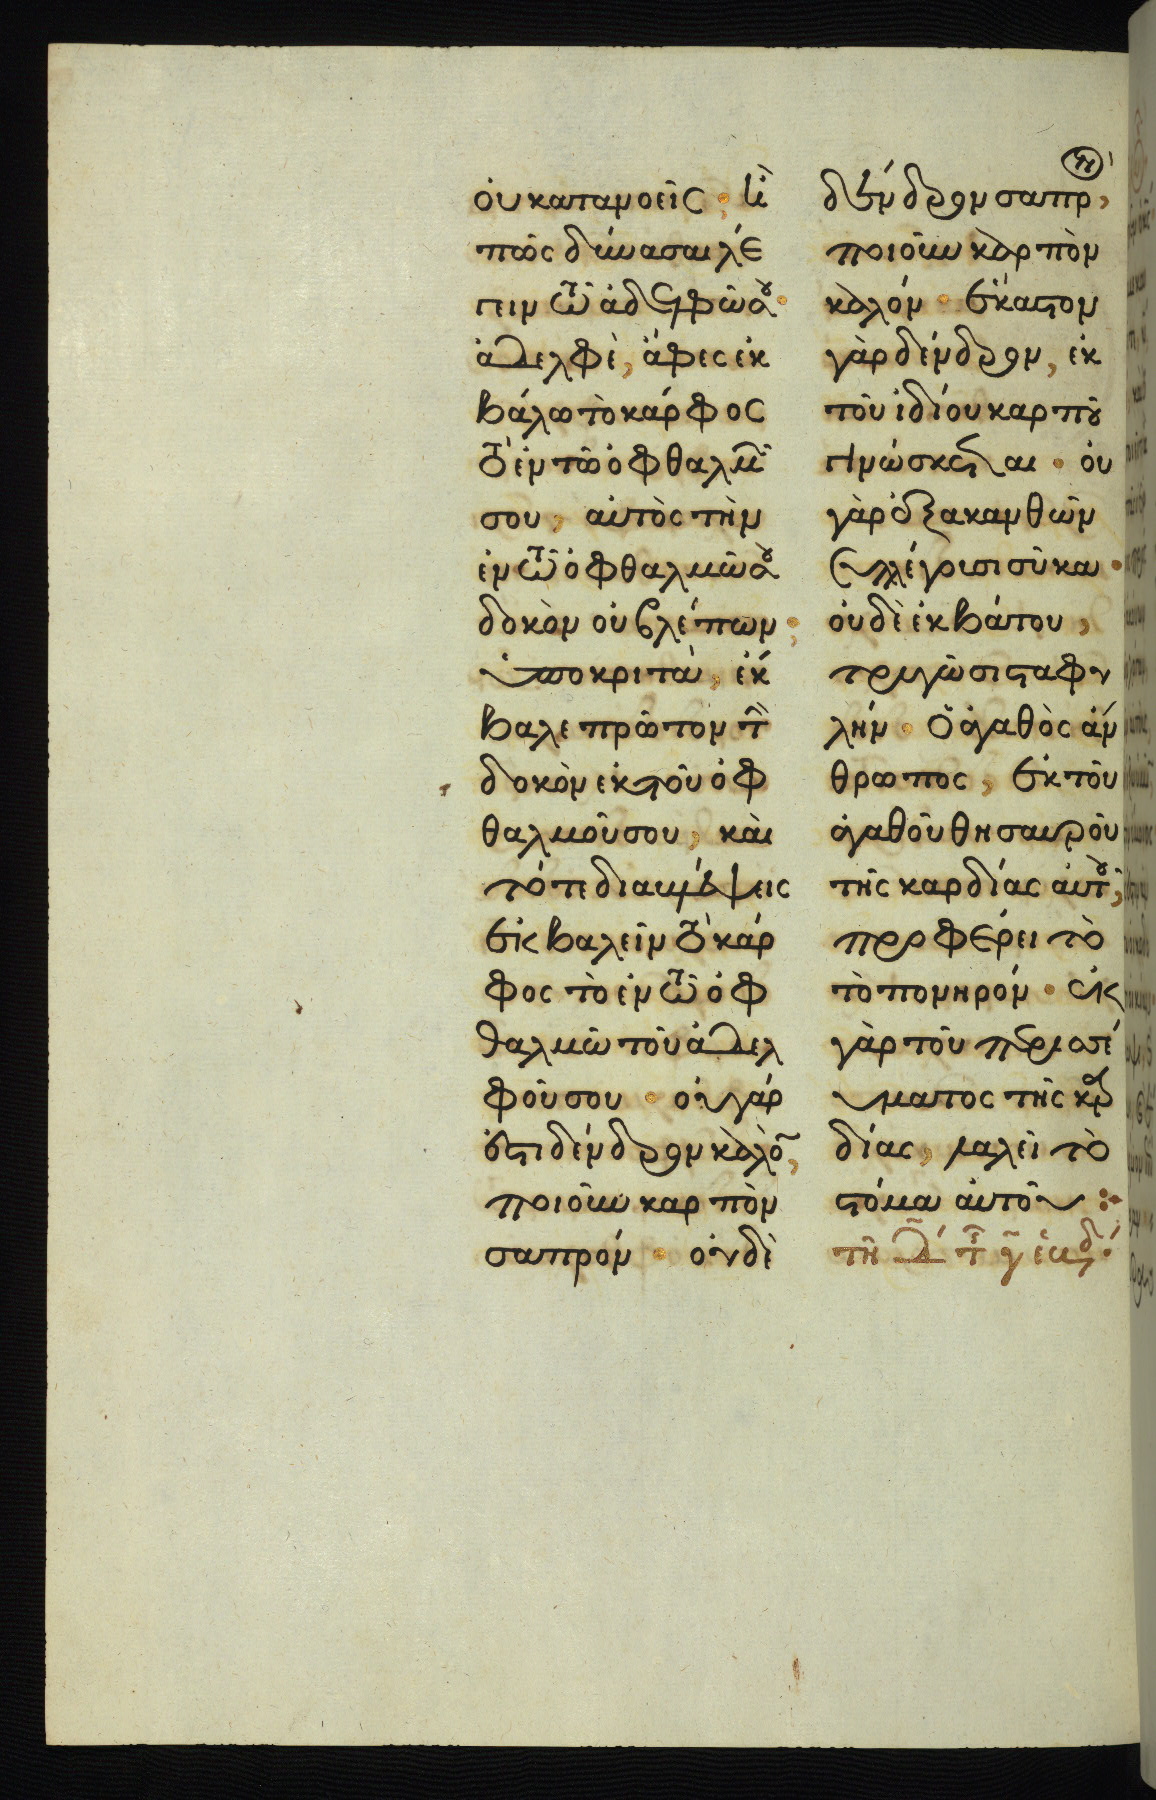 οὐ κατανοεῖς · ἢ
πῶς δύνασαι λέ
γειν τῶ ἀδελφῶ σου ·
ἀδελφὲ, ἄφες ἐκ
βάλω τὸ κάρφος
τὸ ἐν τῶ ὀφθαλμῶ
σου, αὐτὸς τὴν
ἐν τῶ ὀφθαλμῶ σου
δοκὸν οὐ βλέπων ·
ὑποκριτὰ, ἔκ
βαλε πρῶτον τὴν
δοκὸν ἐκ τοῦ ὀφ
θαλμοῦ σου, καὶ
τότε διαβλέψεις
ἐκβαλεῖν τὸ κάρ
φος τὸ ἐν τῶ ὀφ
θαλμῶ τοῦ ἀδελ
φοῦ σου · οὐ γάρ
ἐστι δένδρον καλὸν,
ποιοῦν καρπὸν
σαπρόν · οὐδὲ
δένδρον σαπρὸν,
ποιοῦν καρπὸν
καλόν · ἕκαστον
γὰρ δένδρον, ἐκ
τοῦ ἰδίου καρποῦ
γινώσκεται · οὐ
γὰρ ἐξ ἀκανθῶν
συλλέγουσι σῦκα ·
οὐδὲ ἐκ βάτου,
τρυγῶσι σταφυ
λήν · ὁ ἀγαθὸς ἄν
θρωπος, ἐκ τοῦ
ἀγαθοῦ θησαυροῦ
τῆς καρδίας αὐτοῦ,
προφέρει τὸ
τὸ πονηρόν · ἐκ
γὰρ τοῦ περισσεύ
ματος τῆς καρ
δίας, λαλεῖ τὸ
στόμα αὐτοῦ :·
τῆ δ τῆς γ ἑβδ.